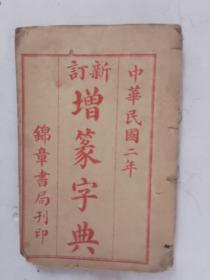 中華民國二年
新訂
增篆字典
錦章書局刊印